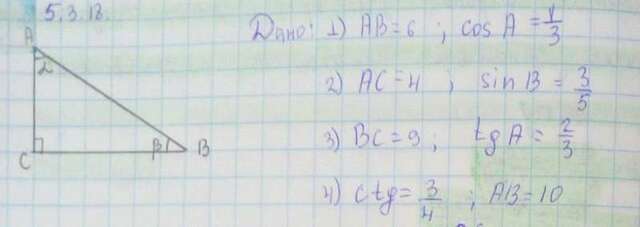 5.3.18.
Дано: 1) AB=6 ; cos A = 1/3
2) AC=4 ; sin B = 3/5
3) BC=9 ; tg A = 2/3
4) ctg = 3/4 ; AB=10
A
α
C
β
B